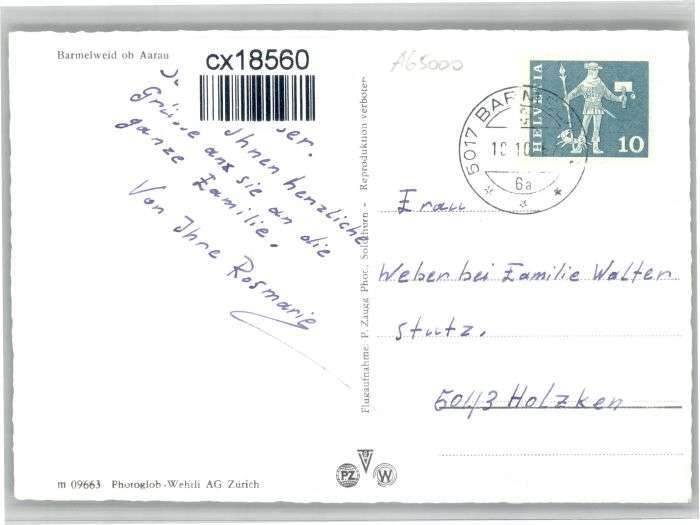 Barmelweid ob Aarau
cx18560
AG5000
ser.
Ihnen herzliche
Grüsse ans sie an die
ganze Familie.
Von Ihre Rosmarie
Reproduktion verboten
Flugaufnahme: P. Zaugg Phot., Solothurn -
5017 BARM
10
6a
HELVETIA
10
Frau
Weber bei Familie Walter
Stutz.
5043 Holzken
m 09663 Photoglob-Wehrli AG Zürich
PZ
W